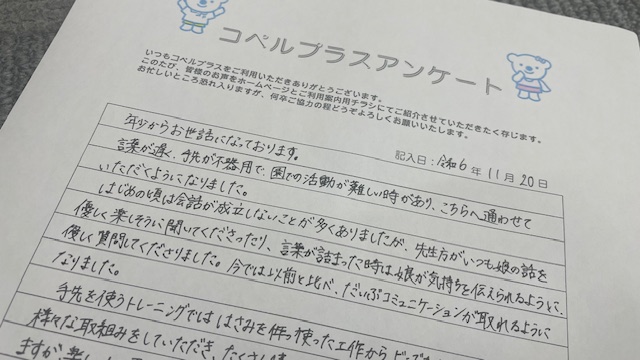 コペルプラスアンケート
いつもコペルプラスをご利用いただきありがとうございます。
このたび、皆様のお声をホームページとご利用案内用チラシにてご紹介させていただきたく存じます。
お忙しいところ恐れ入りますが、何卒ご協力の程どうぞよろしくお願いいたします。
記入日：令和6年11月20日
年少からお世話になっております。
言葉が遅く、手先が不器用で、園での活動が難しい時があり、こちらへ通わせて
いただくようになりました。
はじめの頃は会話が成立しないことが多くありましたが、先生方がいつも娘の話を
優しく楽しそうに聞いてくださったり、言葉が詰まった時は娘が気持ちを伝えられるように、
優しく質問してくださりました。今では以前と比べ、だいぶコミュニケーションが取れるように
なりました。
手先を使うトレーニングでは はさみを使った工作から
様々な取組みをしていただき、たくさん
ますが、楽し